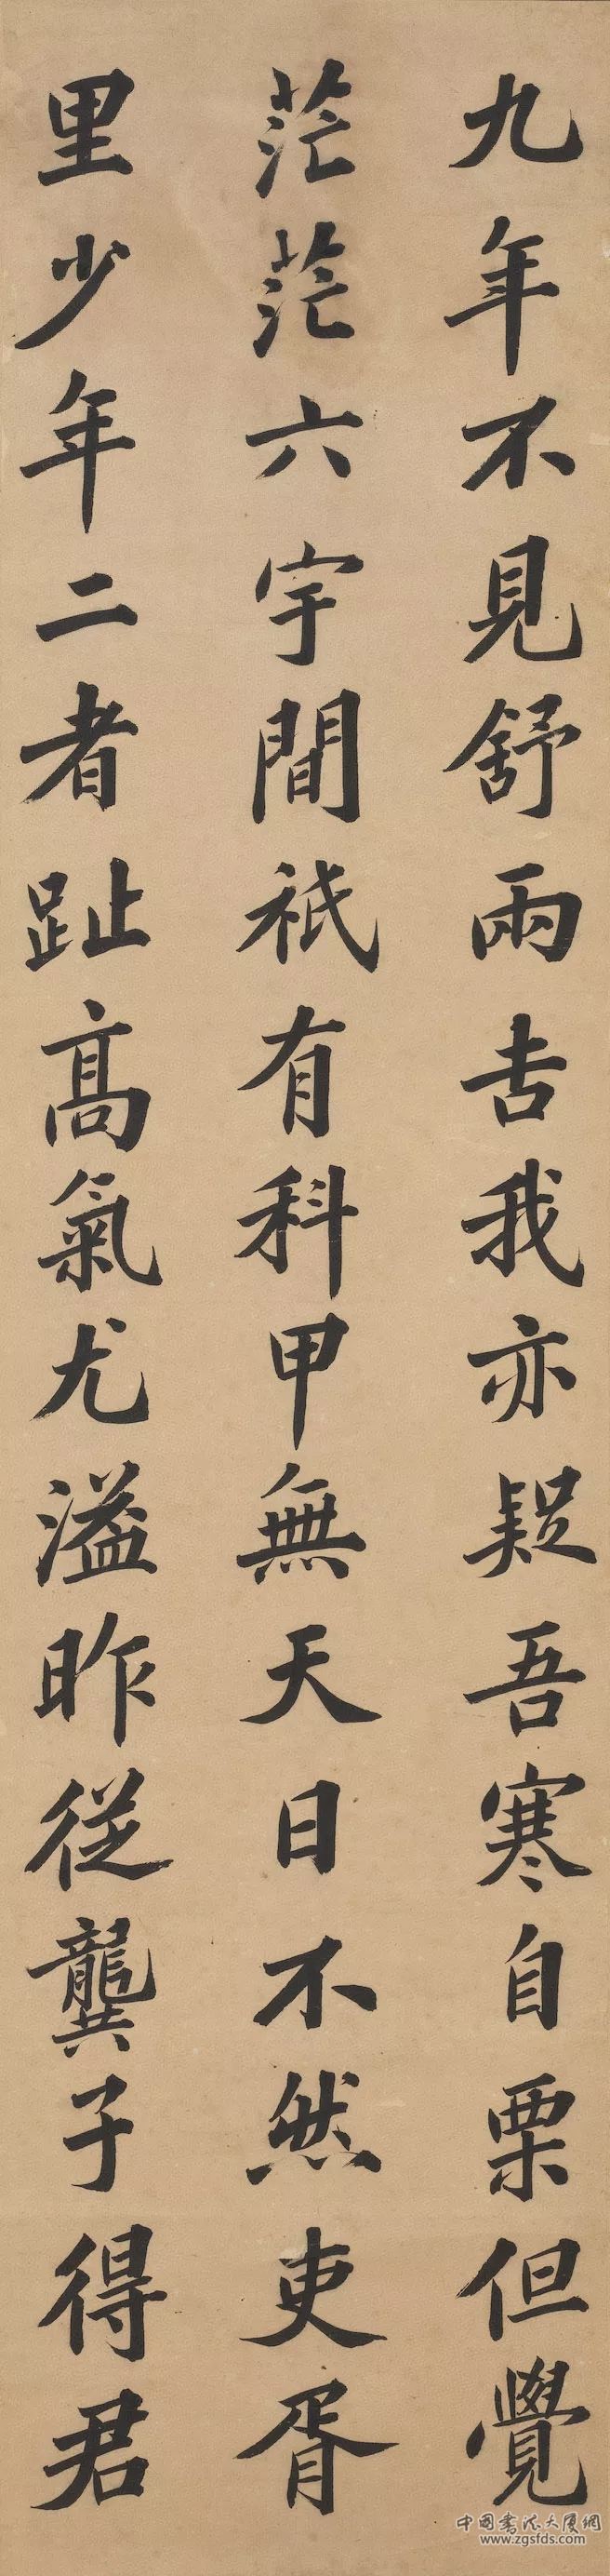 九年不見舒兩吉我亦疑吾寒自栗但覺
茫茫六宇間祇有科甲無天日不然吏胥
里少年二者趾高氣尤溢昨從龔子得君
中国书法大厦网
www.zgsfds.com